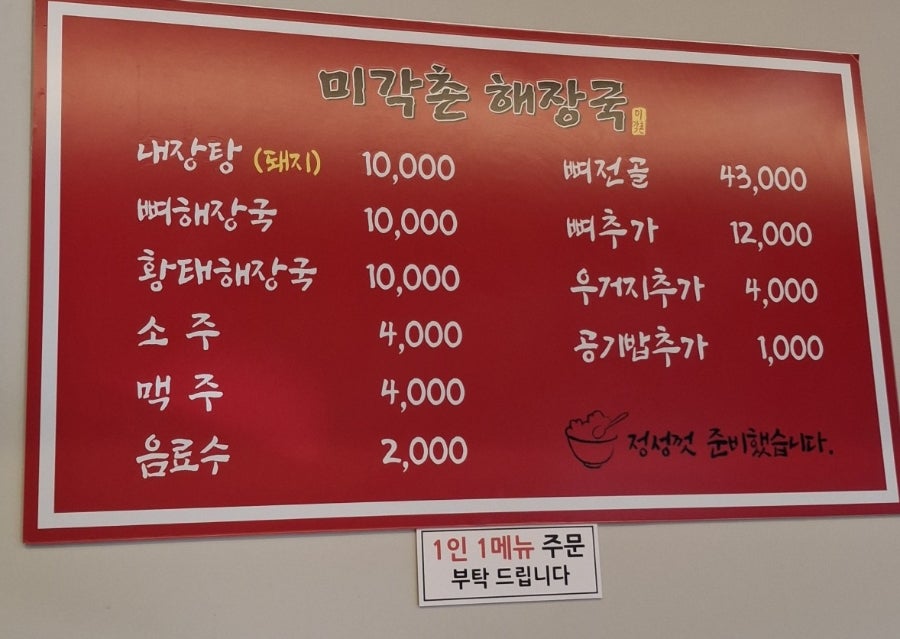 미각촌 해장국
미각촌
내장탕 (돼지) 10,000
뼈해장국 10,000
황태해장국 10,000
소 주 4,000
맥 주 4,000
음료수 2,000
뼈전골 43,000
뼈추가 12,000
우거지추가 4,000
공기밥추가 1,000
정성껏 준비했습니다.
1인 1메뉴 주문
부탁 드립니다